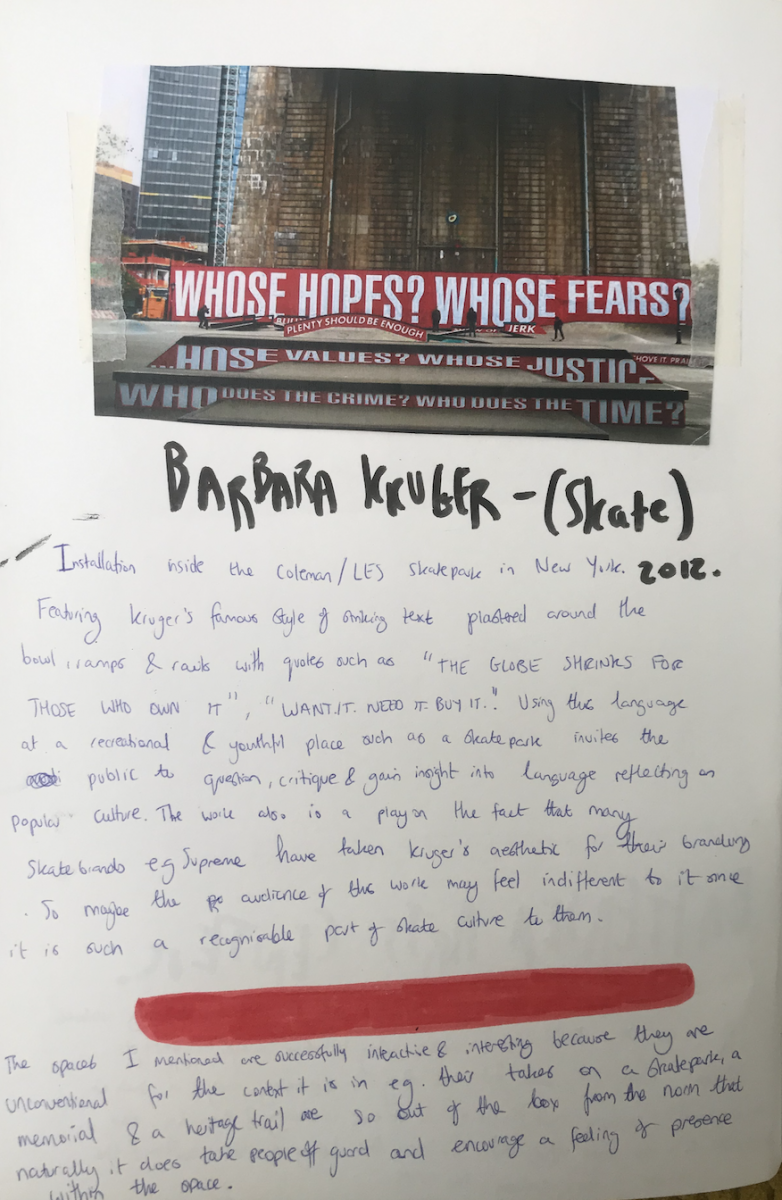 WHOSE HOPES? WHOSE FEARS?
PLENTY SHOULD BE ENOUGH
JERK
...HOSE VALUES? WHOSE JUSTIC
SHOVE IT. PRAI
WHO DOES THE CRIME? WHO DOES THE TIME?
BARBARA KRUGER - (Skate)
Installation inside the Coleman/LES skatepark in New York. 2012.
Featuring Kruger's famous style of striking text plastered around the
bowl, ramps & rails with quotes such as "THE GLOBE SHRINKS FOR
THOSE WHO OWN IT", "WANT.IT. NEED IT. BUY IT." Using this language
at a recreational & youthful place such as a skatepark invites the
public to question, critique & gain insight into language reflecting on
popular culture. The work also is a play on the fact that many
Skate brands eg Supreme have taken Kruger's aesthetic for their branding
. So maybe the audience of this work may feel indifferent to it since
it is such a recognisable part of skate culture to them.
The spaces I mentioned are successfully interactive & interesting because they are
unconventional for the context it is in eg. their takes on a skatepark, a
memorial & a heritage trail are so out of the box from the norm that
naturally it does take people off guard and encourage a feeling of presence
within the space.